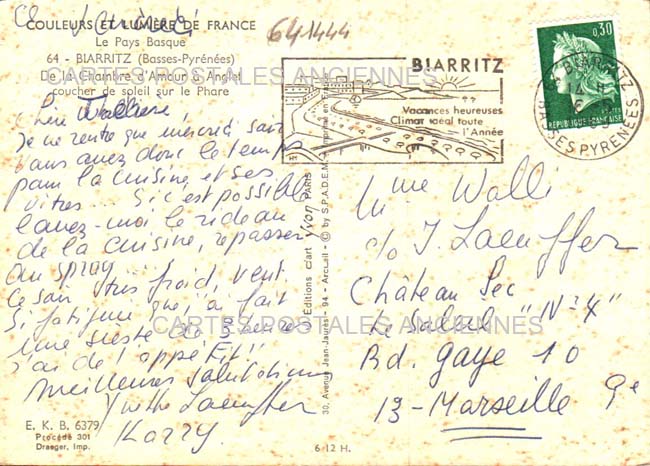 Ce Vendredi
641444
COULEURS ET LUMIÈRE DE FRANCE
Le Pays Basque
64 - BIARRITZ (Basses-Pyrénées)
De la Chambre d'Amour à Anglet
coucher de soleil sur le Phare
CARTES POSTALES ANCIENNES
Chère
je ne rentre que mercredi soir
vous avez donc le temps
pour la cuisine et ses
vitres... Si c'est possible
lavez-moi le rideau
de la cuisine, repasser
au spray
Ce soir très froid, vent
Si fatiguée que j'ai fait
une sieste de 3 heures
j'ai de l'appétit!!
Meilleures salutations
Yvette Laeuffer
E. K. B. 6379
Procédé 301
Draeger, Imp.
6-12 H.
Editions d'art YVON PARIS
30, Avenue Jean-Jaurès - 94 - Arcueil - © by S.P.A.D.E.M.
BIARRITZ
Vacances heureuses
Climat idéal toute
l'Année
0,30
REPUBLIQUE FRANÇAISE
BIARRITZ
14
6
BASSES PYRENEES
Mme Walli
c/o J. Laeuffer
Château Sec
Le Salad "No 4"
Bd. Gaye 10
13-Marseille 9e
CARTES POSTALES ANCIENNES